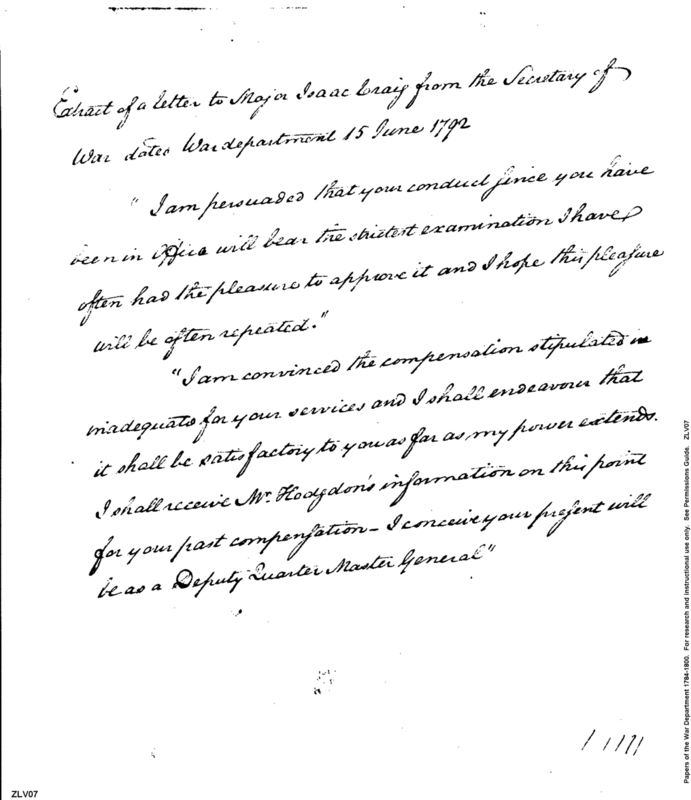 Extract of a letter to Major Isaac Craig from the Secretary of
War dated War department 15 June 1792
"I am persuaded that your conduct since you have
been in Office will bear the strictest examination I have
often had the pleasure to approve it and I hope this pleasure
will be often repeated."
"I am convinced the compensation stipulated is
inadequate for your services and I shall endeavour that
it shall be satisfactory to you as far as my power extends.
I shall receive Mr. Hodgdon's information on this point
for your past compensation – I conceive your present will
be as a Deputy Quarter Master General"
ZLV07
Papers of the War Department 1784-1800. For research and instructional use only. See Permissions Guide. ZLV07